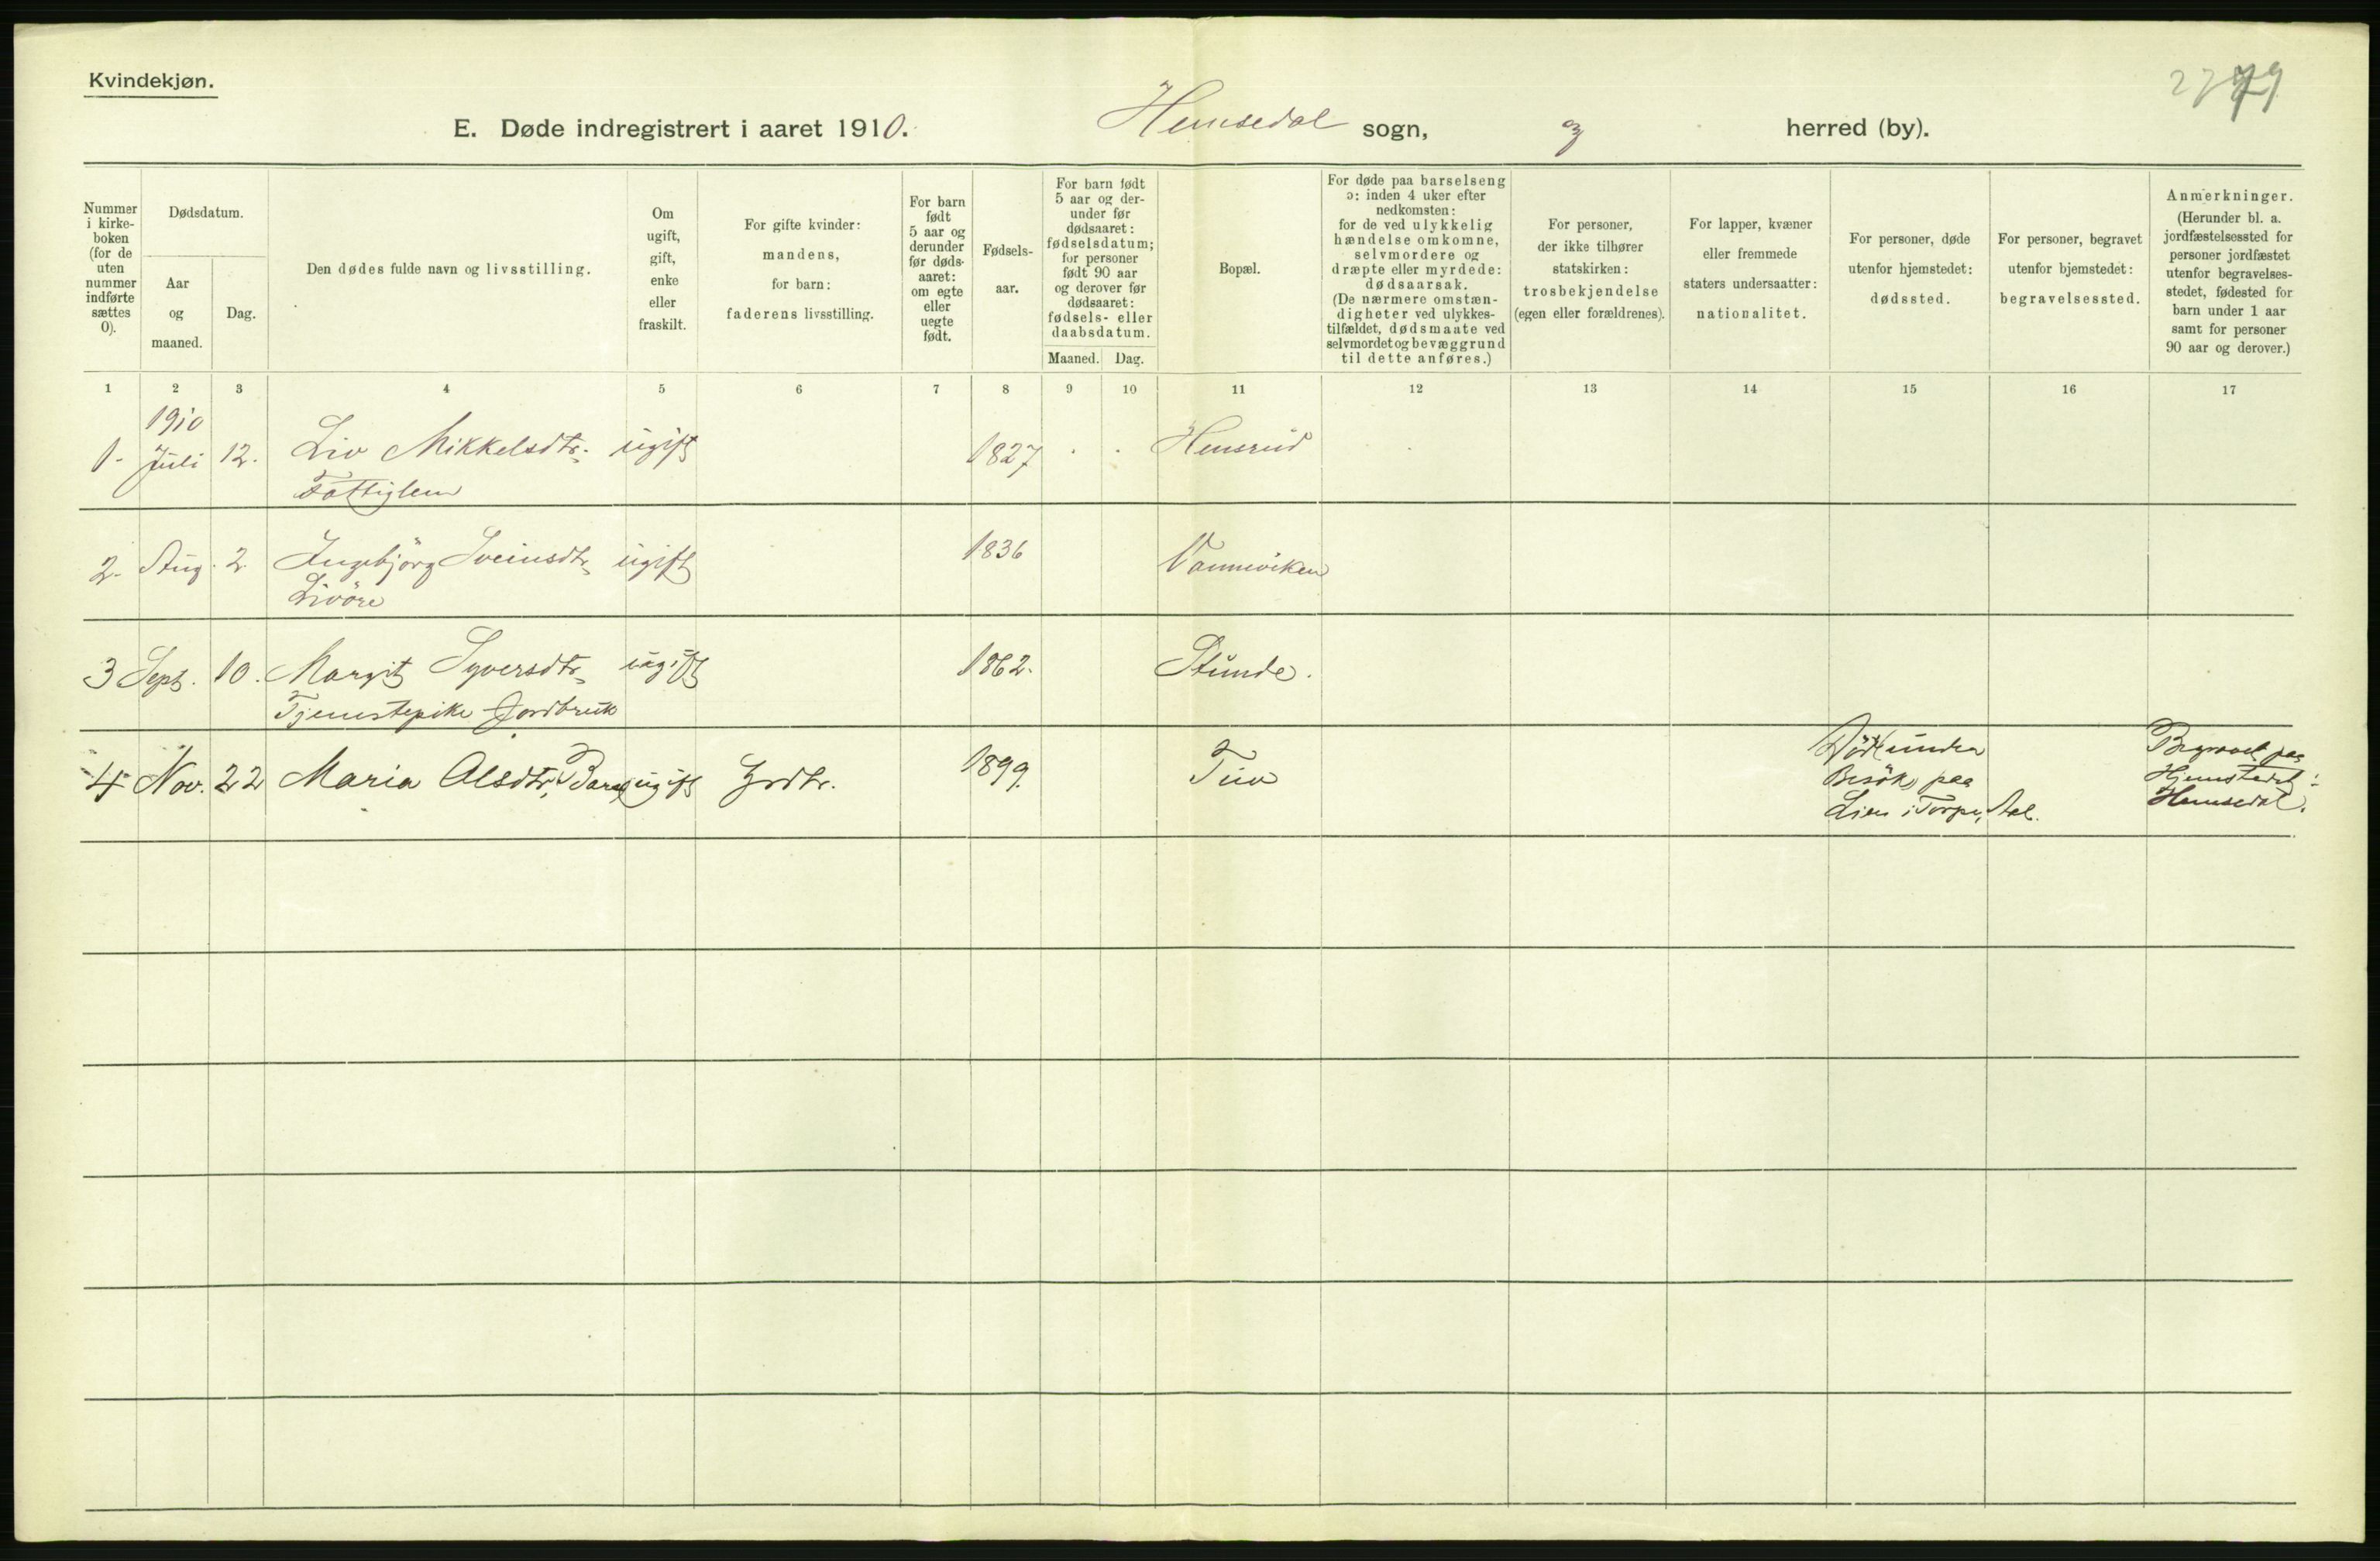 Kvindekjøn.
E. Døde indregistrert i aaret 1910. Hemsedal sogn, og herred (by).
Nummer i kirke-boken (for de uten nummer indførte sættes 0).
Dødsdatum.
Aar og maaned.
Dag.
Den dødes fulde navn og livsstilling.
Om ugift, gift, enke eller fraskilt.
For gifte kvinder: mandens, for barn: faderens livsstilling.
For barn født 5 aar og derunder før døds-aaret: om egte eller uegte født.
Fødsels-aar.
For barn født 5 aar og der-under før dødsaaret: fødselsdatum; for personer født 90 aar og derover før dødsaaret: fødsels- eller daabsdatum.
Maaned. Dag.
Bopæl.
For døde paa barselseng ɔ: inden 4 uker efter nedkomsten: for de ved ulykkelig hændelse omkomne, selvmordere og dræpte eller myrdede: dødsaarsak. (De nærmere omstæn-digheter ved ulykkes-tilfældet, dødsmaate ved selvmordet og bevæggrund til dette anføres.)
For personer, der ikke tilhører statskirken: trosbekjendelse (egen eller forældrenes).
For lapper, kvæner eller fremmede staters undersaatter: nationalitet.
For personer, døde utenfor hjemstedet: dødssted.
For personer, begravet utenfor bjemstedet: begravelsessted.
Anmerkninger. (Herunder bl. a. jordfæstelsessted for personer jordfæstet utenfor begravelses-stedet, fødested for barn under 1 aar samt for personer 90 aar og derover.)
1 2 3 4 5 6 7 8 9 10 11 12 13 14 15 16 17
1910
1. Juli 12. Liv Mikkelsdtr. ugift 1827 Hensrud
Fattiglem
2. Aug. 2 Ingebjörg Sveinsdtr. ugift 1836 Vanneviken
Livöre
3 Sept. 10. Margit Syversdtr. ugift 1862. Stunde.
Tjenestepike Jordbruk
4 Nov. 22 Maria Olsdtr, Barn ugift Grdbr. 1899. Tuv
Död under
Besök paa
Lien i Torpe, Aal.
Begravet paa
Hjemstedet:
Hemsedal.